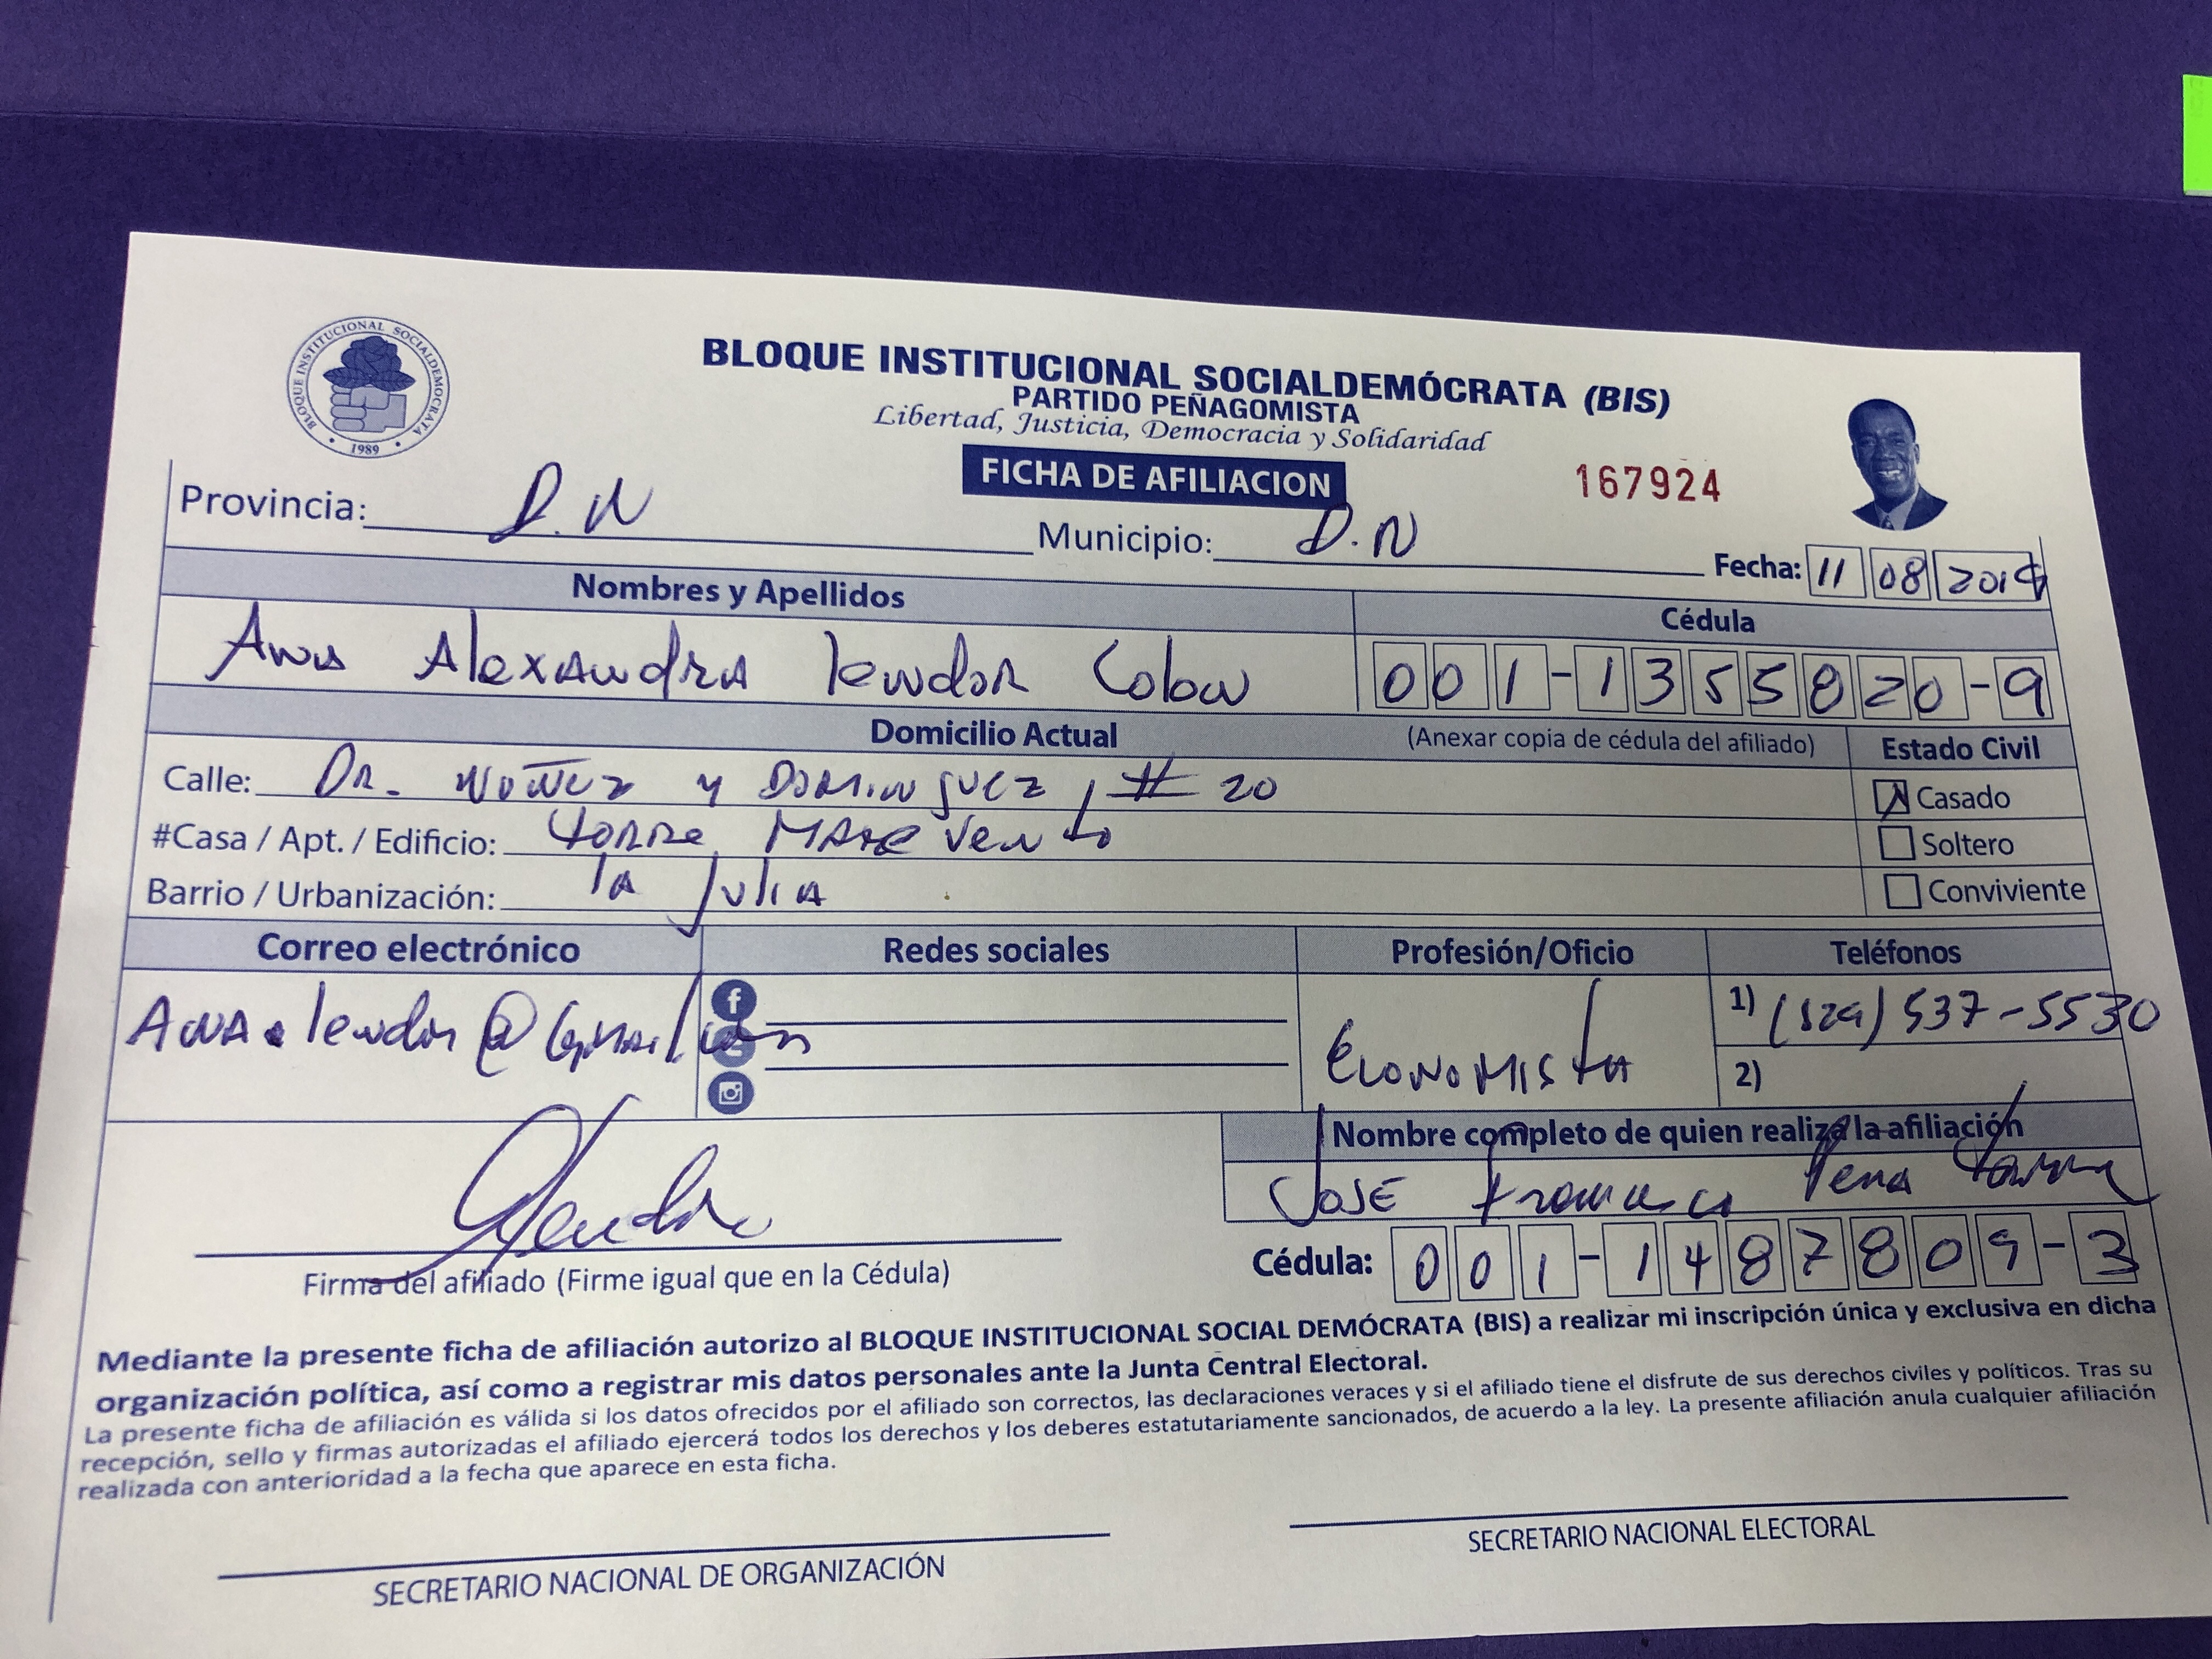 BLOQUE INSTITUCIONAL SOCIALDEMÓCRATA
1989
BLOQUE INSTITUCIONAL SOCIALDEMÓCRATA (BIS)
PARTIDO PEÑAGOMISTA
Libertad, Justicia, Democracia y Solidaridad
FICHA DE AFILIACION
167924
Provincia: D.N
Municipio: D.N
Fecha: 11 08 2019
Nombres y Apellidos
Cédula
Ana Alexandra Tendor Colon
001-1355820-9
Domicilio Actual
(Anexar copia de cédula del afiliado)
Estado Civil
Calle: Dr. Nuñez y Dominguez, # 20
Casado
#Casa / Apt. / Edificio: Torre Mare Vento
Soltero
Barrio / Urbanización: La Julia
Conviviente
Correo electrónico
Redes sociales
Profesión/Oficio
Teléfonos
Economista
1) 537-5530
2)
Nombre completo de quien realiza la afiliación
Jose Francisco Peña
Firma del afiliado (Firme igual que en la Cédula)
Cédula: 001-1487809-3
Mediante la presente ficha de afiliación autorizo al BLOQUE INSTITUCIONAL SOCIAL DEMÓCRATA (BIS) a realizar mi inscripción única y exclusiva en dicha
organización política, así como a registrar mis datos personales ante la Junta Central Electoral.
La presente ficha de afiliación es válida si los datos ofrecidos por el afiliado son correctos, las declaraciones veraces y si el afiliado tiene el disfrute de sus derechos civiles y políticos. Tras su
recepción, sello y firmas autorizadas el afiliado ejercerá todos los derechos y los deberes estatutariamente sancionados, de acuerdo a la ley. La presente afiliación anula cualquier afiliación
realizada con anterioridad a la fecha que aparece en esta ficha.
SECRETARIO NACIONAL DE ORGANIZACIÓN
SECRETARIO NACIONAL ELECTORAL